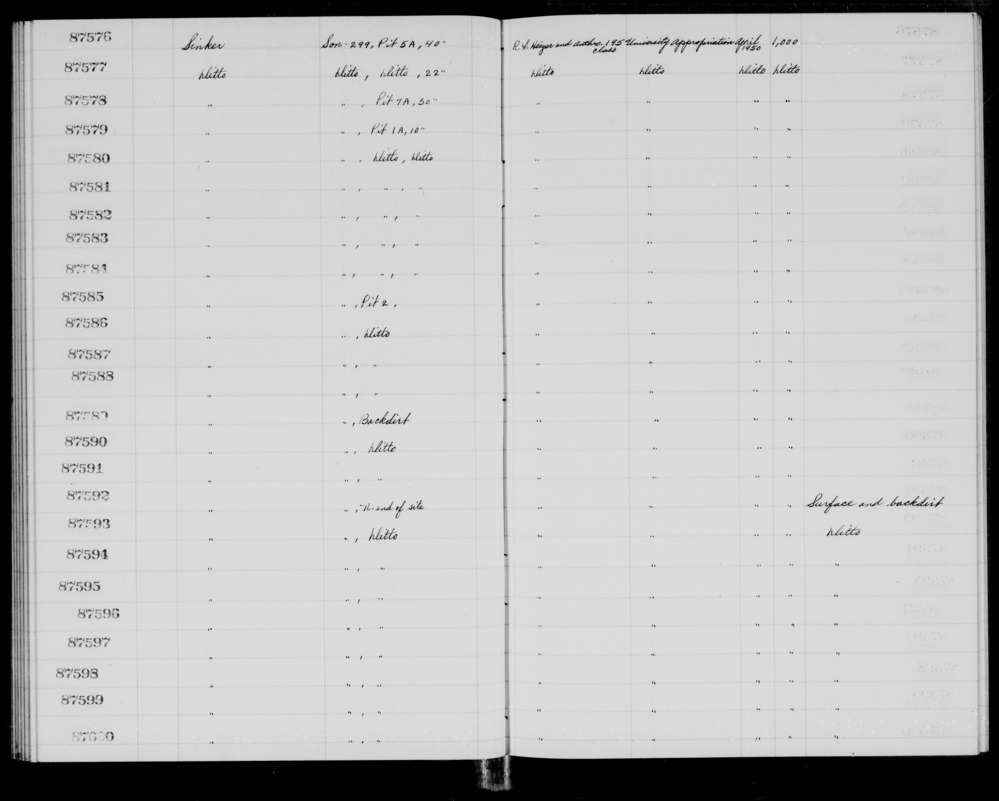 87576 Sinker Son-299, Pit 5A, 40" R. F. Heizer and Anthro. 195 class University Appropriation April 1950 1,000
87577 ditto ditto, ditto, 22" ditto ditto ditto ditto
87578 " ", Pit 7A, 30" " " " "
87579 " ", Pit 1A, 10" " " " "
87580 " ", ditto, ditto " " " "
87581 " ", ", " " " " "
87582 " ", ", " " " " "
87583 " ", ", " " " " "
87584 " ", ", " " " " "
87585 " ", Pit 2, " " " "
87586 " ", ditto " " " "
87587 " ", " " " " "
87588 " ", " " " " "
87589 " ", Backdirt " " " "
87590 " ", ditto " " " "
87591 " ", " " " " "
87592 " ", N. end of site " " " " Surface and backdirt
87593 " ", ditto " " " " ditto
87594 " ", " " " " " "
87595 " ", " " " " " "
87596 " ", " " " " " "
87597 " ", " " " " " "
87598 " ", " " " " " "
87599 " ", " " " " " "
87600 " ", " " " " " "